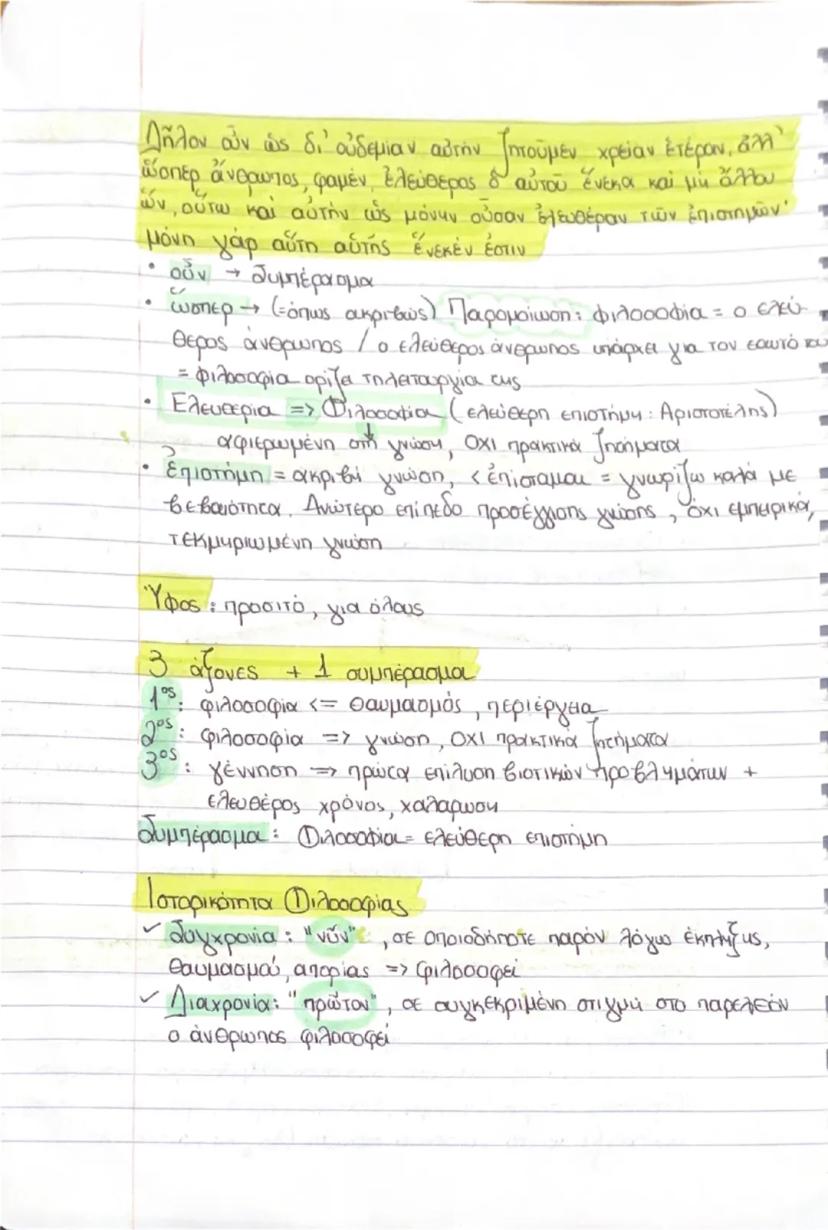 Δῆλον οὖν ὡς δι' οὐδεμίαν αὐτὴν ζητοῦμεν χρείαν ἑτέραν, ἀλλ'
ὥσπερ ἄνθρωπος, φαμέν, ἐλεύθερος ὁ αὑτοῦ ἕνεκα καὶ μὴ ἄλλου
ὤν, οὕτω καὶ αὐτὴν ὡς μόνην οὖσαν ἐλευθέραν τῶν ἐπιστημῶν·
μόνη γάρ αὕτη αὑτῆς ἕνεκέν ἐστιν
• οὖν → συμπέρασμα
• ὥσπερ → (=όπως ακριβώς) Παρομοίωση: φιλοσοφία = ο ελεύ-
θερος άνθρωπος / ο ελεύθερος άνθρωπος υπάρχει για τον εαυτό του
= φιλοσοφία ορίζει τη λειτουργία της
• Ελευθερία => Φιλοσοφία (ελεύθερη επιστήμη: Αριστοτέλης)
↓
αφιερωμένη στη γνώση, ΟΧΙ πρακτικά ζητήματα
• ἐπιστήμη = ακριβή γνώση, < ἐπίσταμαι = γνωρίζω καλά με
βεβαιότητα. Ανώτερο επίπεδο προσέγγισης γνώσης, όχι εμπειρικά,
τεκμηριωμένη γνώση
Ύφος: προσιτό, για όλους
3 άξονες + 1 συμπέρασμα
1ος: φιλοσοφία <= θαυμασμός, περιέργεια
2ος: φιλοσοφία => γνώση, ΟΧΙ πρακτικά ζητήματα
3ος: γέννηση => πρώτα επίλυση βιοτικών προβλημάτων +
ελευθέρος χρόνος, χαλάρωση
Συμπέρασμα: Φιλοσοφία = ελεύθερη επιστήμη
Ιστορικότητα Φιλοσοφίας
✓ Συγχρονία: "νῦν", σε οποιοδήποτε παρόν λόγω έκπληξης,
θαυμασμού, απορίας => φιλοσοφεί
✓ Διαχρονία: "πρῶτον", σε συγκεκριμένη στιγμή στο παρελθόν
ο άνθρωπος φιλοσοφεί